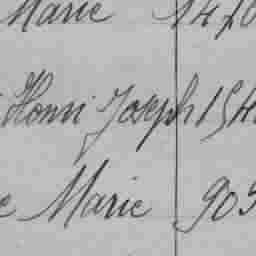 Marie 14
Henri Joseph 154
e Marie 905